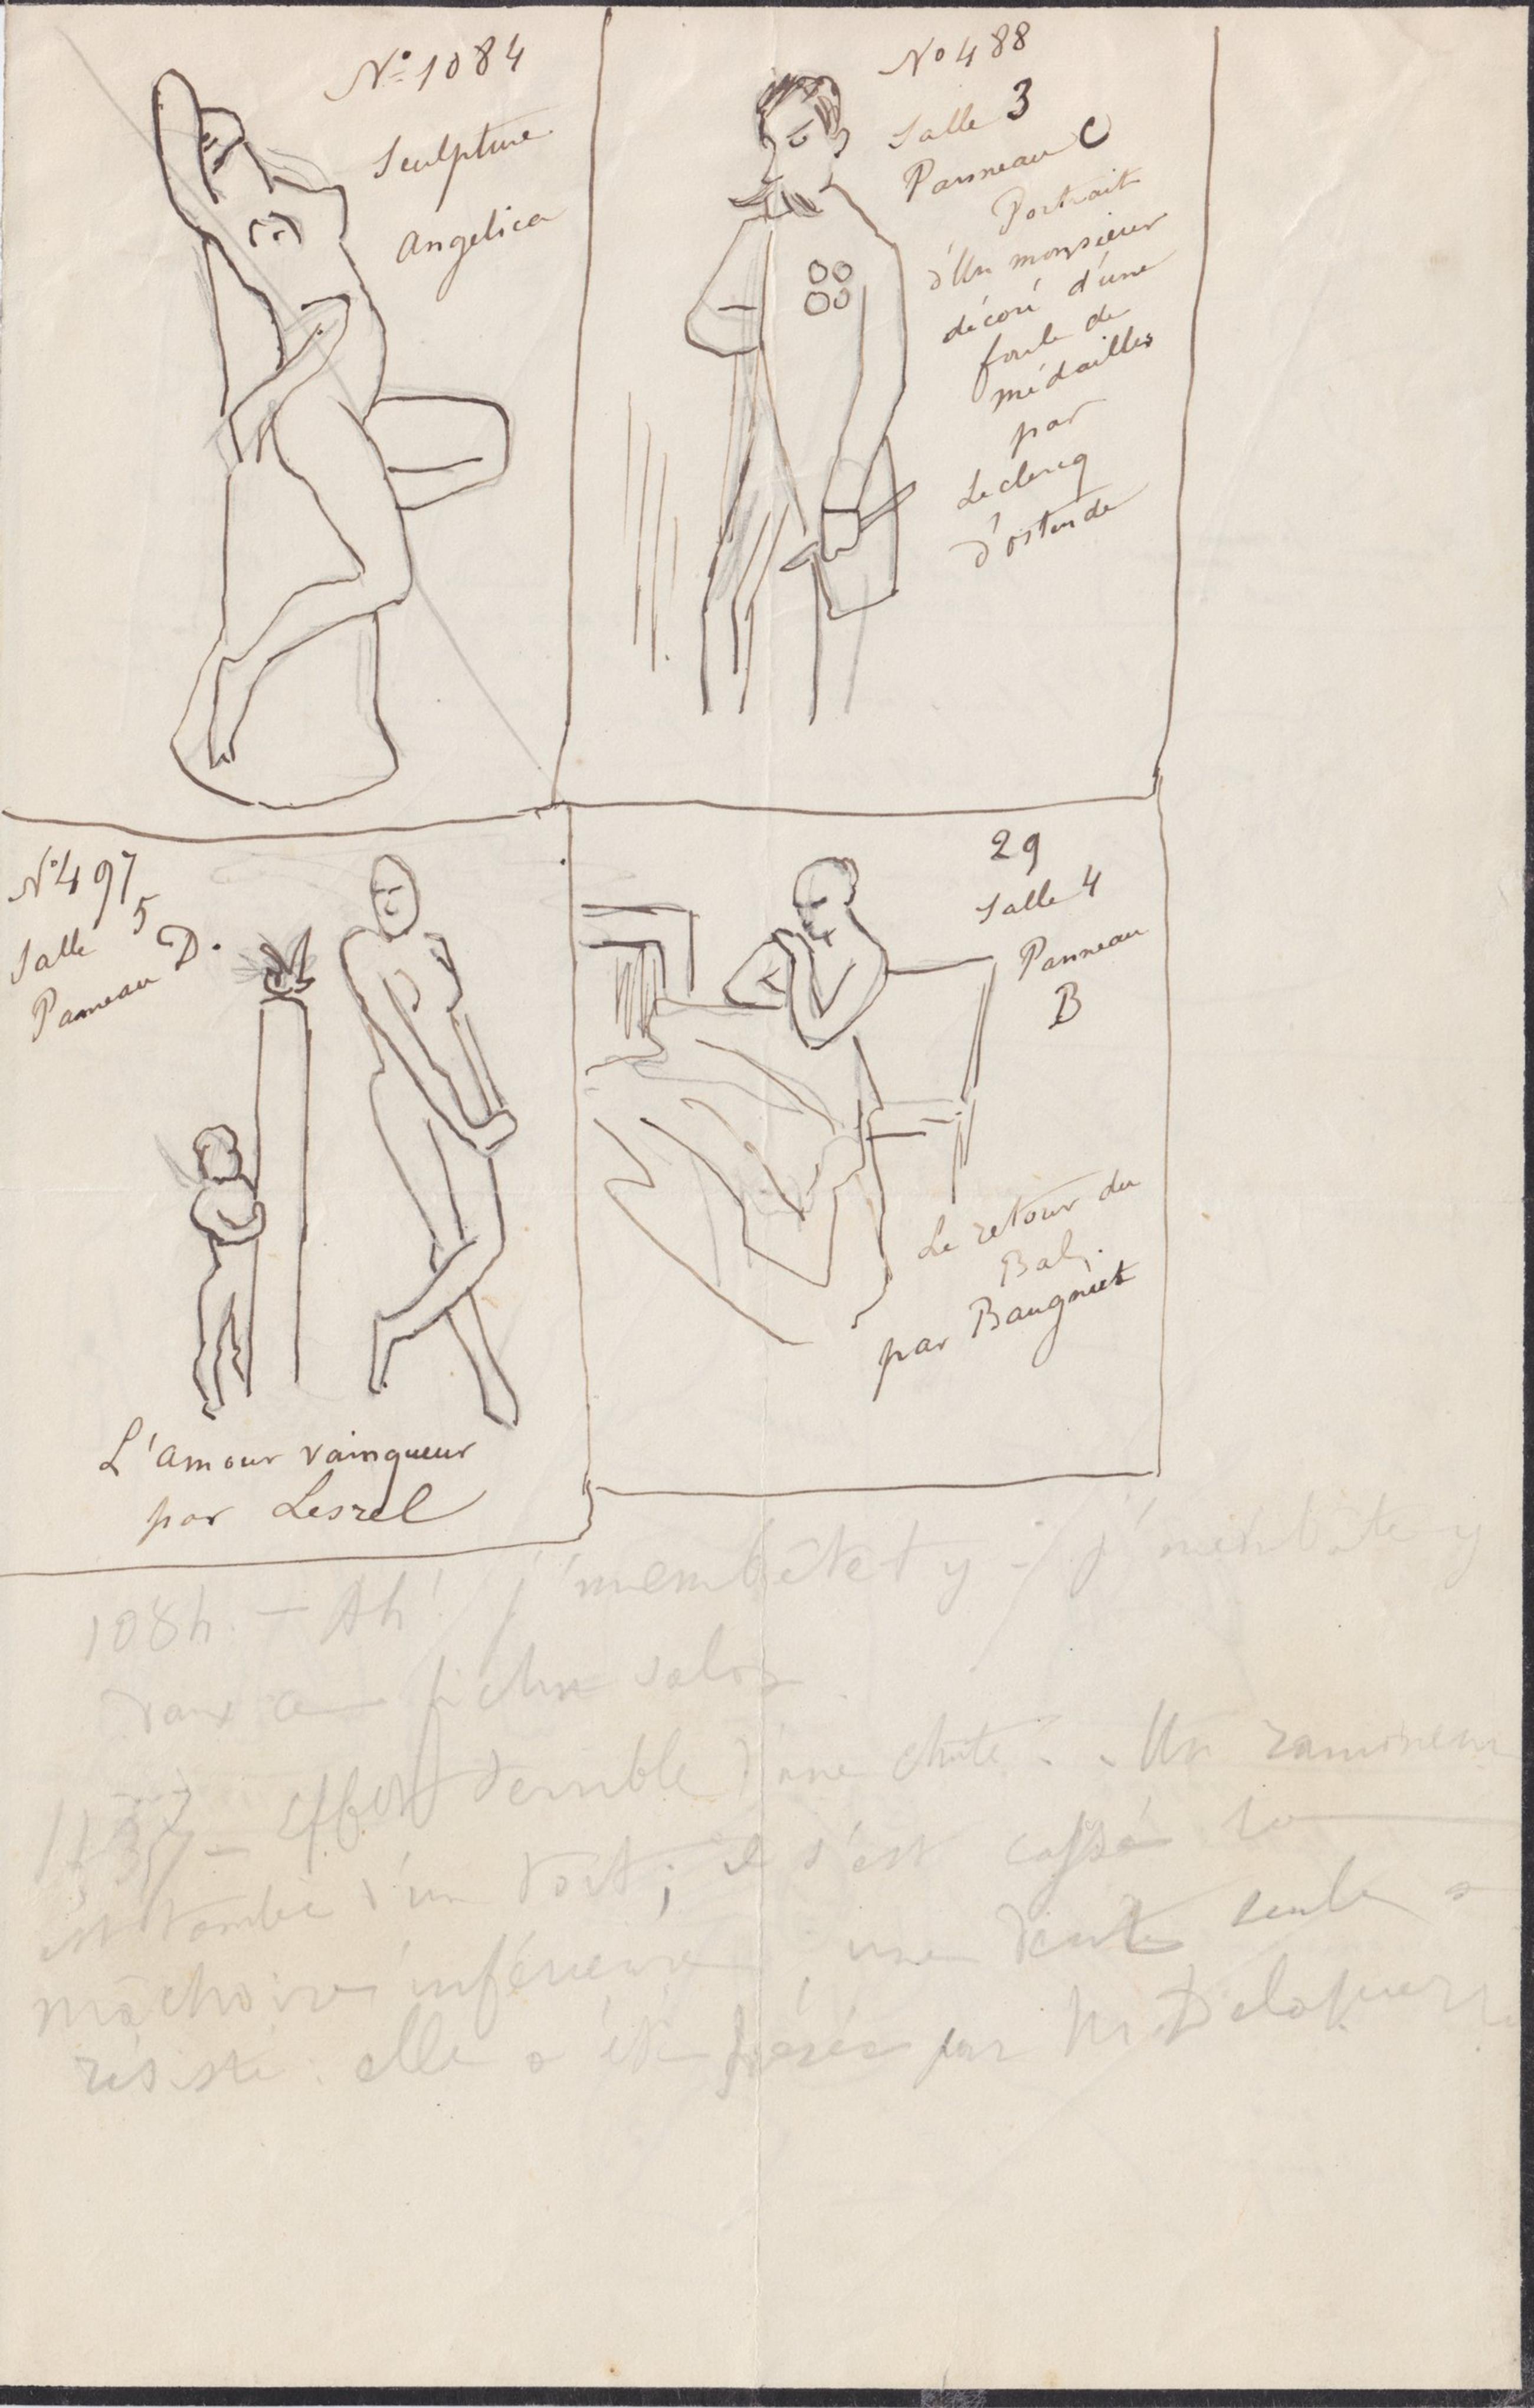 No 1084
Sculpture
Angelica
No 488
Salle 3
Panneau C
Portrait
d'Un monsieur
décoré d'une
foule de
médailles
par
Leclercq
d'ostende
No 497
Salle 5
Panneau D.
L'amour vainqueur
par Lesrel
29
Salle 4
Panneau
B
Le retour du
Bal.
par Baugniet
Ah! j'
salon
terrible d'une chute. Un ramoneur
est tombé d'un toit; il s'est cassé la
mâchoire inférieure une dent seule a
résisté: elle a été par Mr